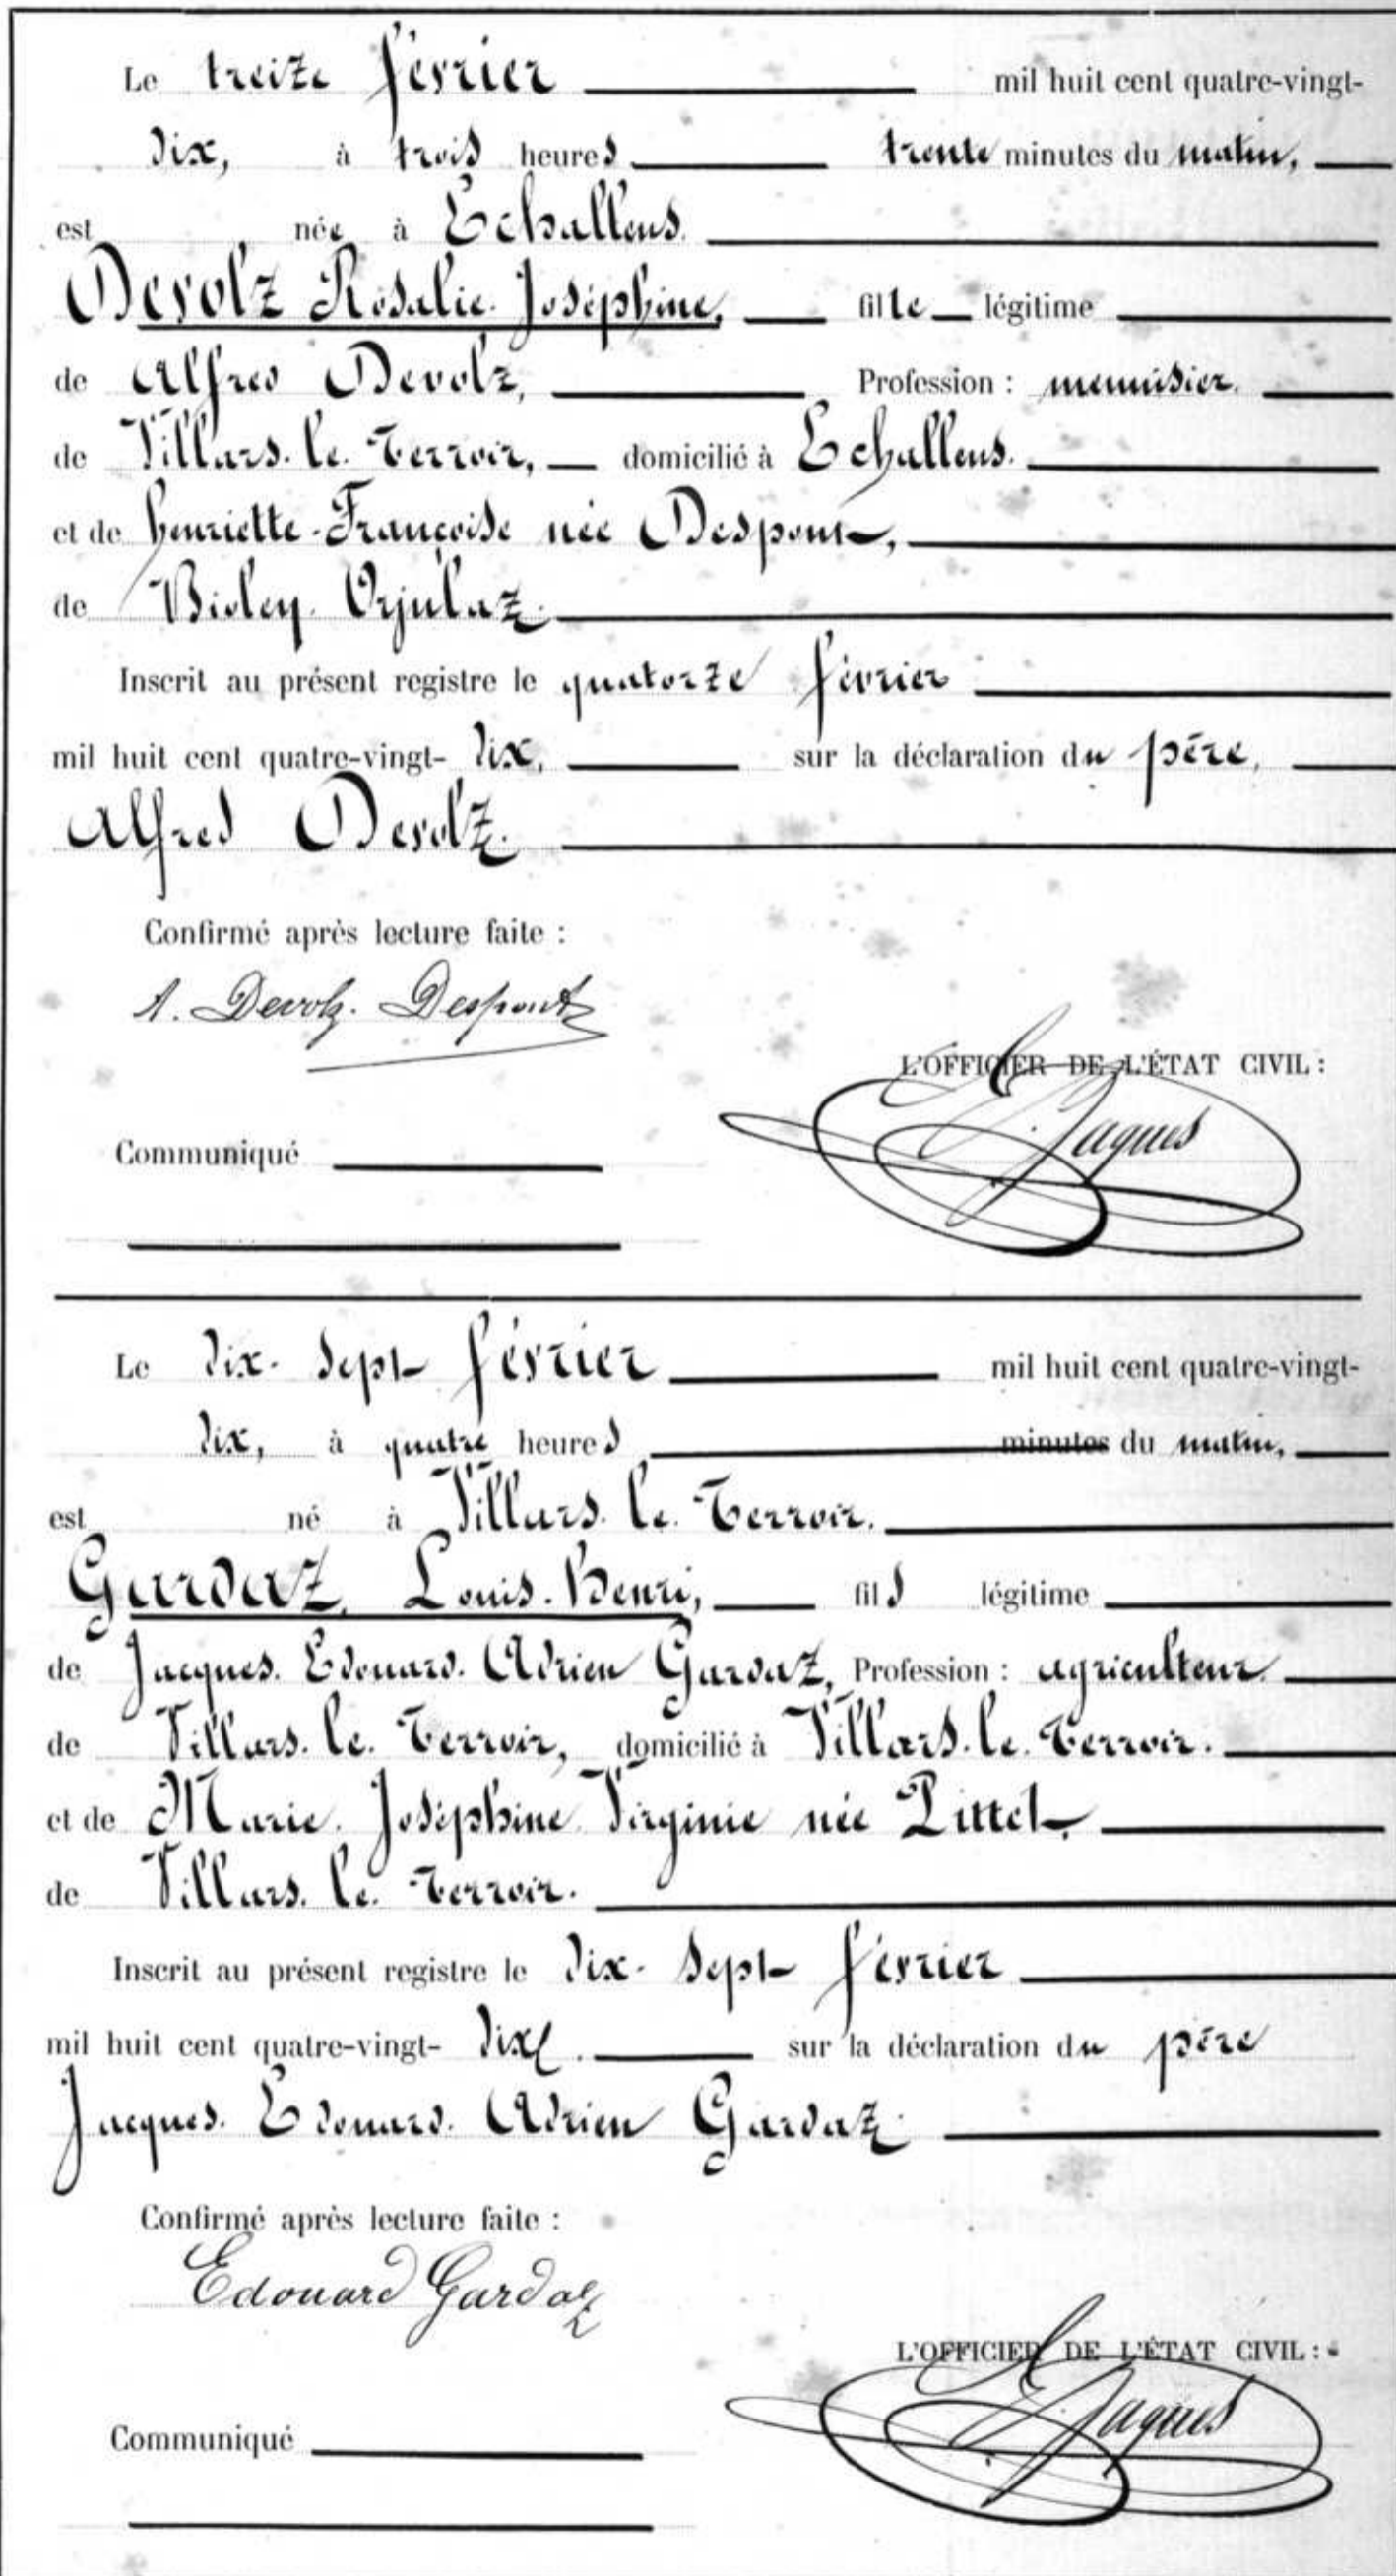 Le treize février mil huit cent quatre-vingt-
dix, à trois heures trente minutes du matin,
est née à Echallens.
Devolz Rosalie-Joséphine, fille légitime
de Alfred Devolz, Profession : menuisier.
de Villars-le-Terroir, domicilié à Echallens.
et de Henriette-Françoise née Despont,
de Bioley-Orjulaz.
Inscrit au présent registre le quatorze février
mil huit cent quatre-vingt- dix, sur la déclaration du père,
Alfred Devolz.
Confirmé après lecture faite :
A. Devolz. Despont
L'OFFICIER DE L'ÉTAT CIVIL :
Jaques
Communiqué
Le dix-sept février mil huit cent quatre-vingt-
dix, à quatre heures minutes du matin,
est né à Villars-le-Terroir.
Gardaz, Louis-Henri, fils légitime
de Jacques-Edouard-Adrien Gardaz, Profession : agriculteur.
de Villars-le-Terroir, domicilié à Villars-le-Terroir.
et de Marie-Joséphine-Virginie née Pittet,
de Villars-le-Terroir.
Inscrit au présent registre le dix-sept février
mil huit cent quatre-vingt- dix sur la déclaration du père
Jacques-Edouard-Adrien Gardaz.
Confirmé après lecture faite :
Edouard Gardaz
L'OFFICIER DE L'ÉTAT CIVIL :
Jaques
Communiqué